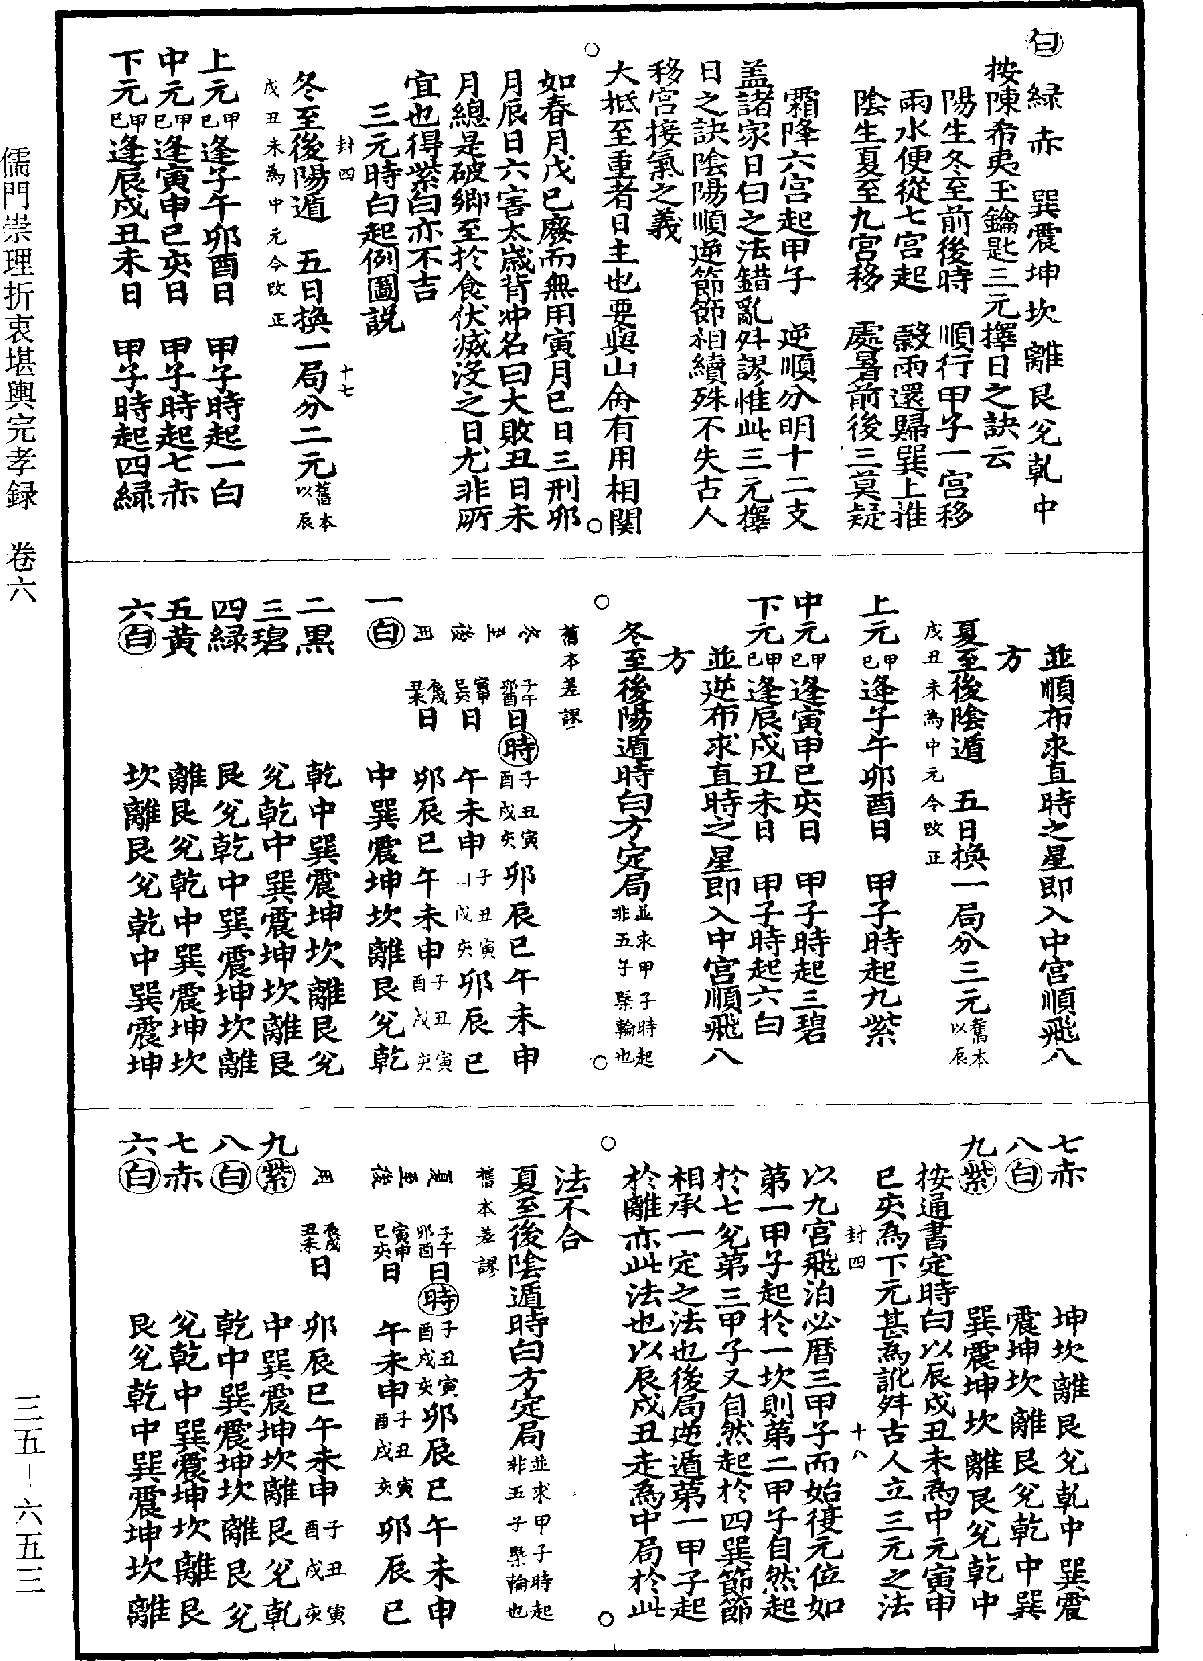 白 緑赤 巽震坤坎離艮兌乾中
按陳希夷玉鑰匙三元擇日之訣云
陽生冬至前後時 順行甲子一宮移
雨水便從七宮起 穀雨還歸巽上推
陰生夏至九宮移 處暑前後三莫疑
霜降六宮起甲子 逆順分明十二支
盖諸家日白之法錯亂舛謬惟此三元擇
日之訣陰陽順逆節節相續殊不失古人
移宮接氣之義
○大抵至重者日主也要與山侖有用相関○
如春月戊巳廢而無用寅月巳日三刑卯
月辰日六害太歲背冲名曰大敗丑日未
月總是破鄉至於食伏滅没之日尤非所
宜也得紫白亦不吉
三元時白起例圖説
封四 十七
冬至後陽遁 五日換一局分二元舊本以辰
戌丑未為中元今改正
上元甲巳逢子午卯酉日 甲子時起一白
中元甲巳逢寅申巳亥日 甲子時起七赤
下元甲巳逢辰戌丑未日 甲子時起四緑
並順布求直時之星即入中宮順飛八
方
夏至後陰遁 五日換一局分三元舊本以辰
戌丑未為中元今改正
上元甲巳逢子午卯酉日 甲子時起九紫
中元甲巳逢寅申巳亥日 甲子時起三碧
下元甲巳逢辰戌丑未日 甲子時起六白
並逆布求直時之星即入中宮順飛八
方
○冬至後陽遁時白方定局並求甲子時起非五子槩輪也○
舊本差謬
冬 子午卯酉日時 子丑寅酉戌亥 卯辰巳午未申
至 寅申巳亥日 午未申 子丑寅戌亥 卯辰巳
後 辰戌丑未日 卯辰巳午未申 子丑寅酉戌亥
一白 中巽震坤坎離艮兌乾
二黒 乾中巽震坤坎離艮兌
三碧 兌乾中巽震坤坎離艮
四緑 艮兌乾中巽震坤坎離
五黄 離艮兌乾中巽震坤坎
六白 坎離艮兌乾中巽震坤
七赤 坤坎離艮兌乾中巽震
八白 震坤坎離艮兌乾中巽
九紫 巽震坤坎離艮兌乾中
按通書定時白以辰戌丑未為中元寅申
巳亥為下元甚為訛舛古人立三元之法
封四 十八
以九宮飛泊必曆三甲子而始復元位如
第一甲子起於一坎則第二甲子自然起
於七兌第三甲子又自然起於四巽節節
相承一定之法也後局逆遁第一甲子起
○於離亦此法也以辰戌丑走為中局於此○
法不合
夏至後陰遁時白方定局並求甲子時起非五子槩輪也
舊本差謬
夏 子午卯酉日時 子丑寅酉戌亥 卯辰巳午未申
至 寅申巳亥日 午未申 子丑寅酉戌亥 卯辰巳
後 辰戌丑未日 卯辰巳午未申 子丑寅酉戌亥
九紫 中巽震坤坎離艮兌乾
八白 乾中巽震坤坎離艮兌
七赤 兌乾中巽震坤坎離艮
六白 艮兌乾中巽震坤坎離
儒門崇理折衷堪輿完孝録 卷六
三五-六五三